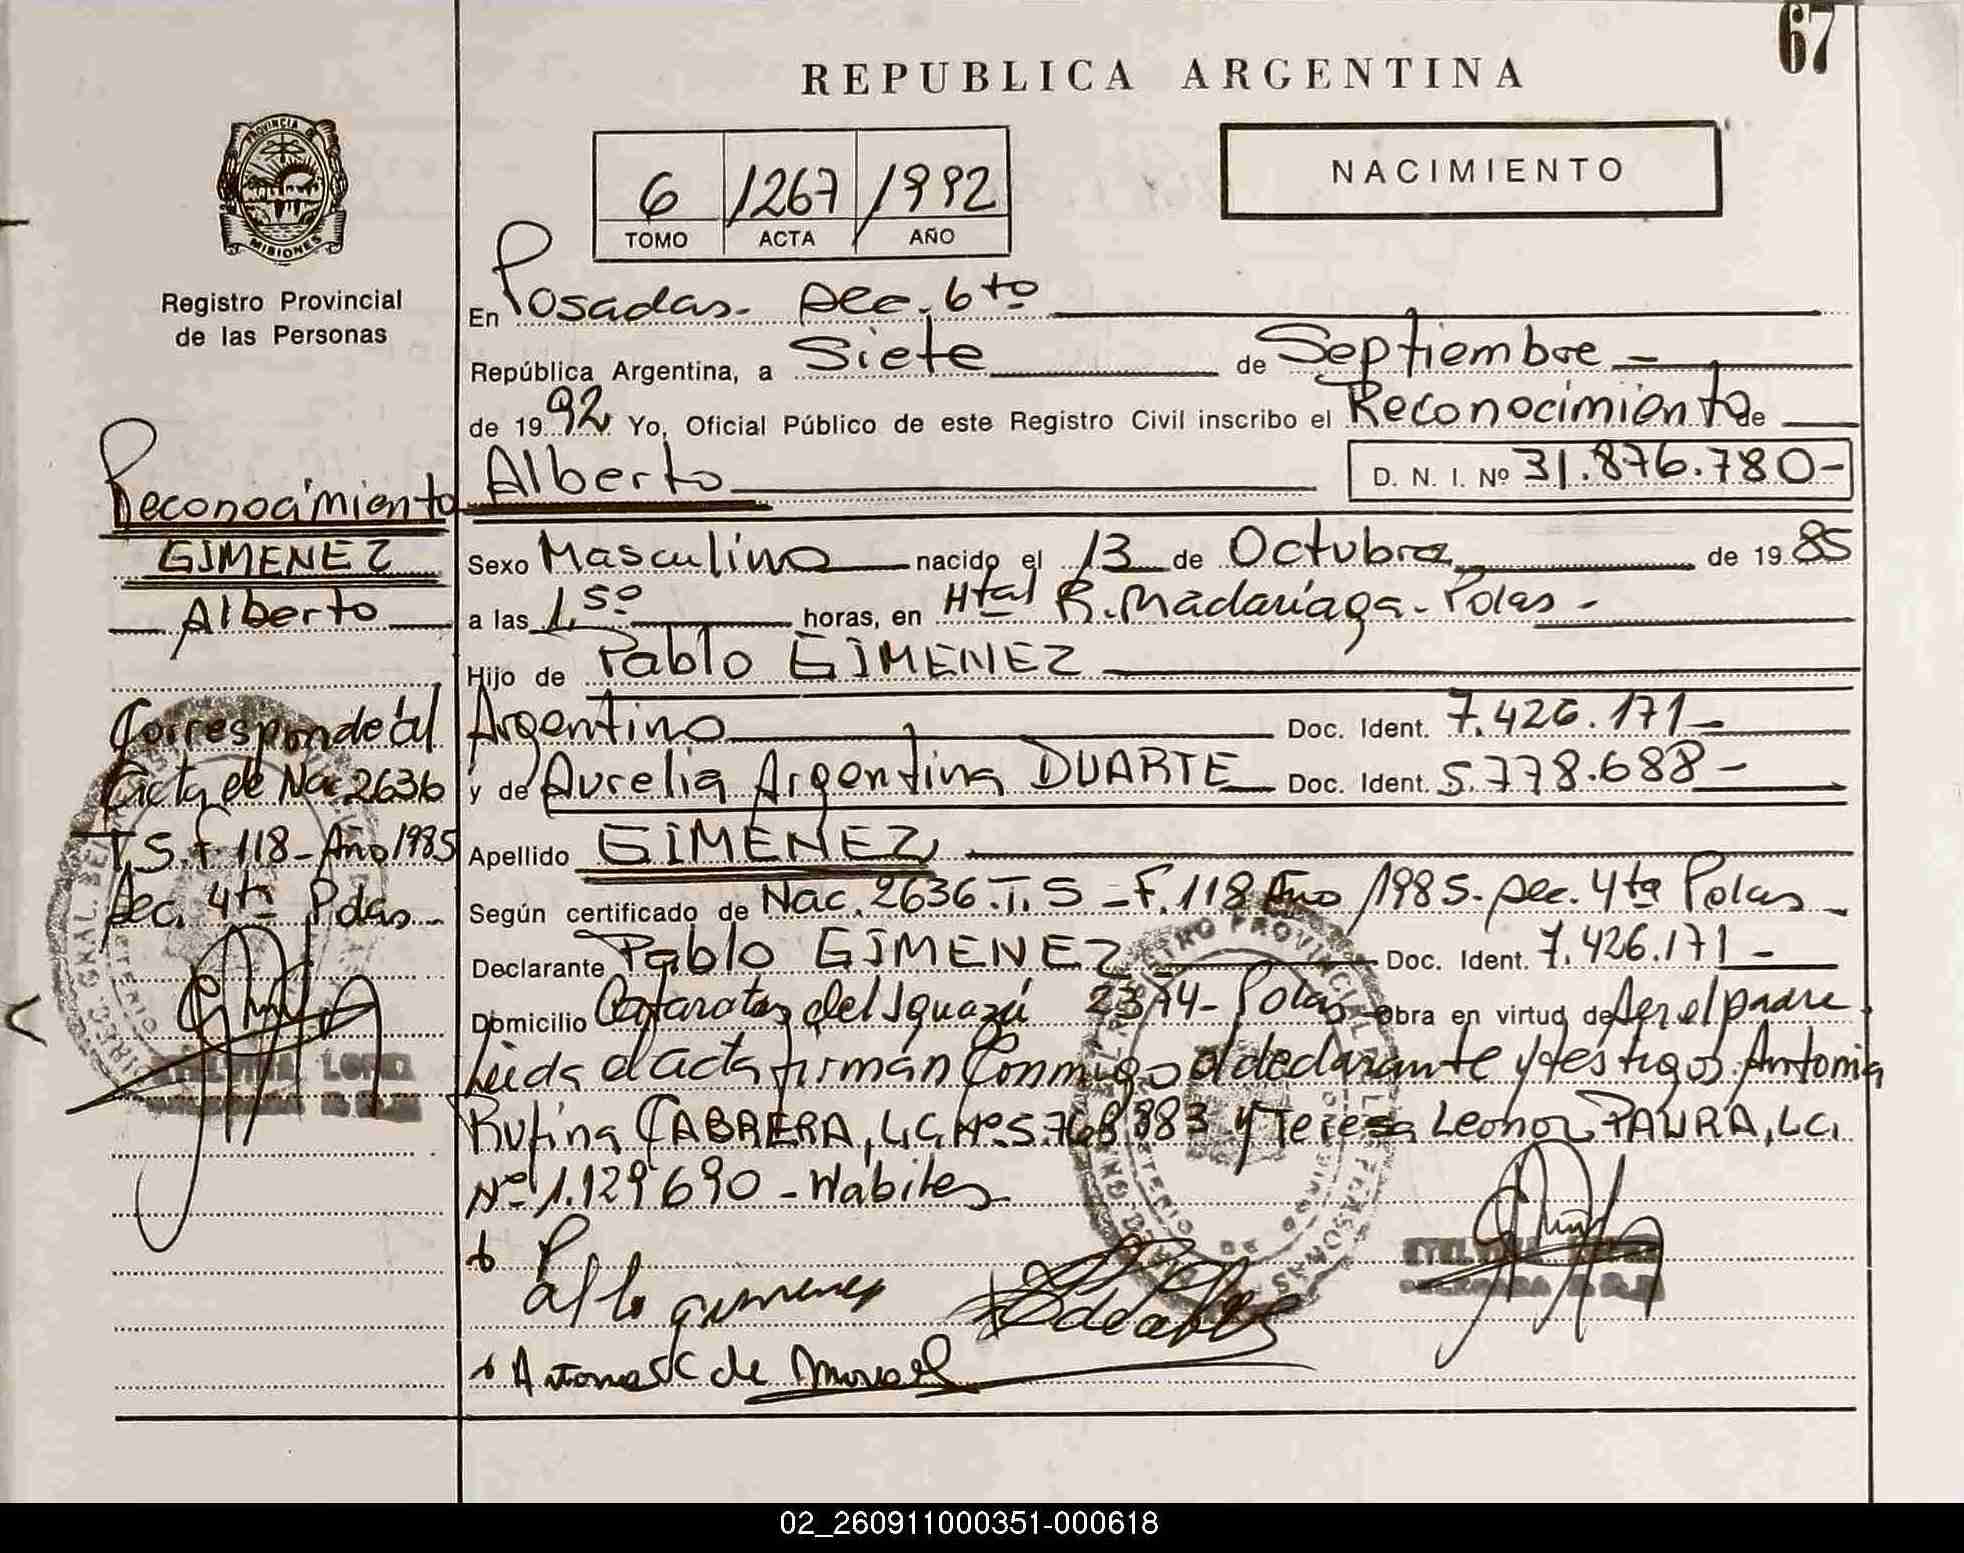 67
REPUBLICA ARGENTINA
NACIMIENTO
6 1267 1992
TOMO ACTA AÑO
PROVINCIA DE
MISIONES
Registro Provincial
de las Personas
Reconocimiento
GIMENEZ
Alberto
Corresponde al
Acta de Nac 2636
T. 5. F 118 - Año 1985
Sec. 4ta Pdas.
En Posadas - Sec. 6to
República Argentina, a Siete de Septiembre
de 1992 Yo, Oficial Público de este Registro Civil inscribo el Reconocimiento de
Alberto D. N. I. Nº 31.876.780-
Sexo Masculino nacido el 13 de Octubre de 1985
a las 1,50 horas, en Htal R. Madariaga - Pdas -
Hijo de Pablo GIMENEZ
Argentino Doc. Ident. 7.426.171-
y de Aurelia Argentina DUARTE Doc. Ident. 5.778.688-
Apellido GIMENEZ
Según certificado de Nac. 2636. T. 5 - F. 118 Año 1985. Sec. 4ta Pdas
Declarante Pablo GIMENEZ Doc. Ident. 7.426.171-
Domicilio Cataratas del Iguazú - Pdas Obra en virtud de Ser el padre
Leida el acta firman conmigo el declarante y testigos. Antonia
Rufina CABRERA, L.C. Nº 5.768.383 y Teresa Leonor, L.C.
Nº 1.129.690 - Habiles
Pablo gimenez
de
02_260911000351-000618